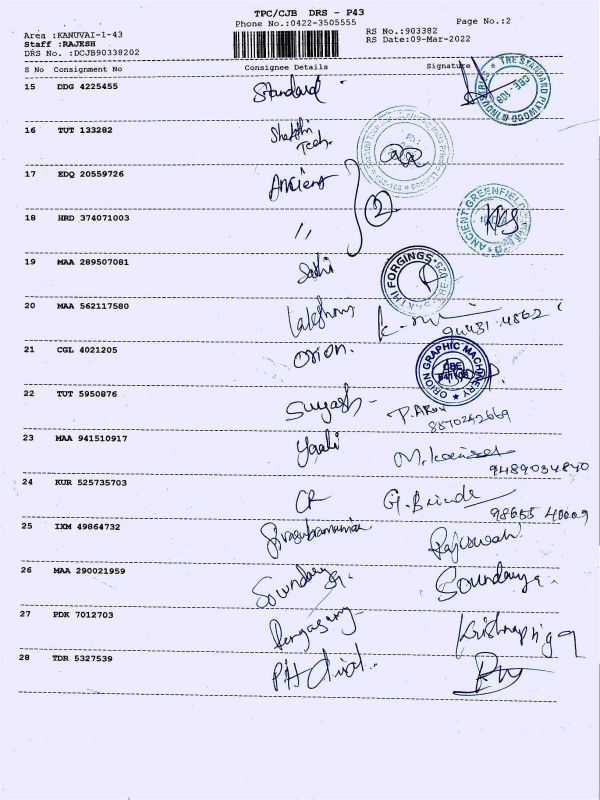 TPC/CJB DRS - P43
Phone No.:0422-3505555
Page No.:2
Area :KANUVAI-1-43
Staff :RAJESH
DRS No. :DCJB90338202
RS No.:903382
RS Date:09-Mar-2022
S No Consignment No Consignee Details Signature
15 DDG 4225455 Standard
THE STANDARD PLYWOOD & INDUSTRIES
CBE-108
16 TUT 133282 Shakthi Tech.
17 EDQ 20559726 Ancient
2
18 HRD 374071003 "
ANCIENT GREENFIELD
19 MAA 289507081 Sakthi
SAKTHI FORGINGS
20 MAA 562117580
21 CGL 4021205 Orion.
ORION GRAPHIC MACHINERY
CBE
641108
22 TUT 5950876 Suyash - P. Arun
8870242669
23 MAA 941510917 Yaali
9489034840
24 KUR 525735703 CP G. Brinda
98655 40009
25 IXM 49864732 Sivasubramanian Rajeswari
26 MAA 290021959 Soundarya. Soundarya.
27 PDK 7012703 Krishnapriya
28 TDR 5327539